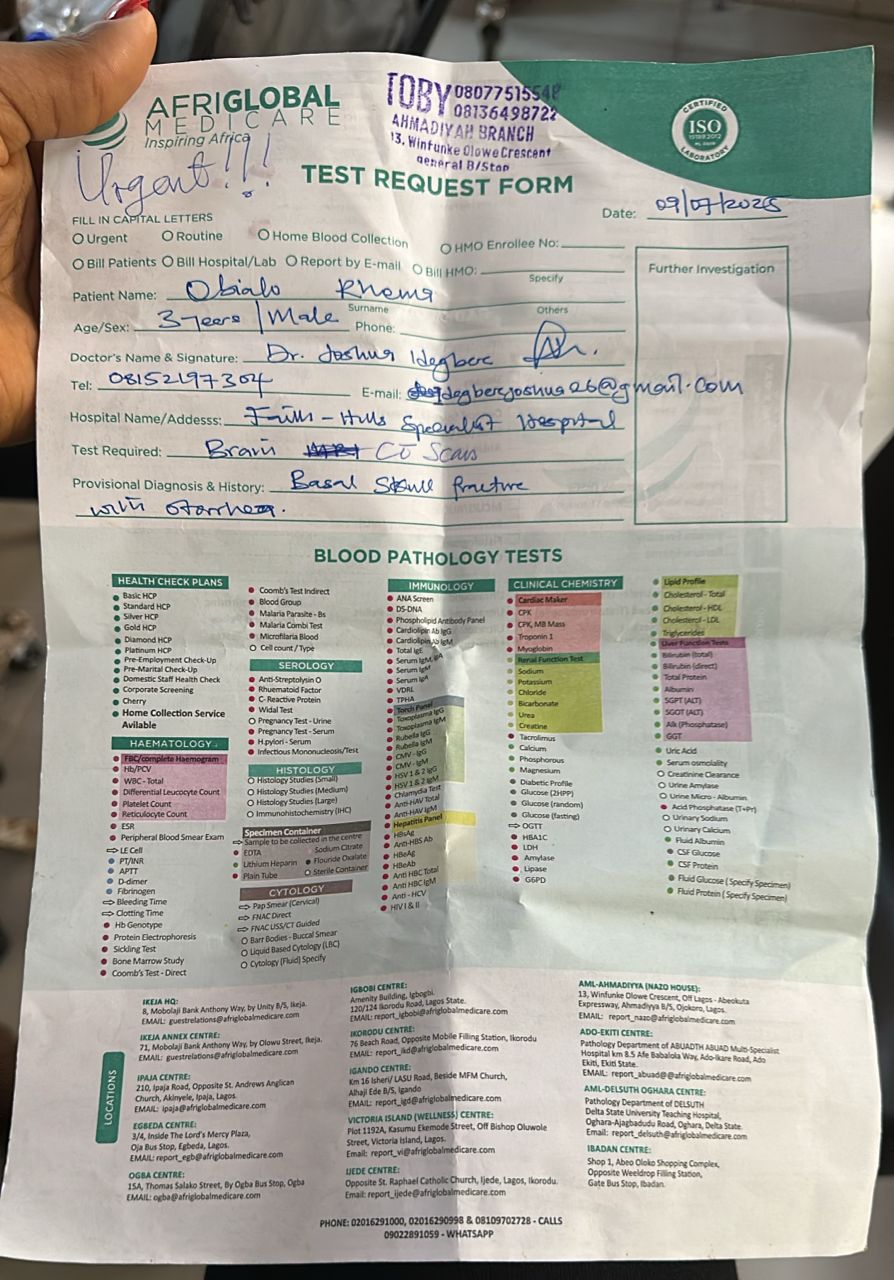 AFRIGLOBAL
MEDICARE
Inspiring Africa
TOBY 08077515548
08136498722
AHMADIYAH BRANCH
13, Winfunke Olowe Crescent
general B/Stop
CERTIFIED
ISO
LABORATORY
Urgent!!!
TEST REQUEST FORM
Date: 09/07/2025
FILL IN CAPITAL LETTERS
Urgent Routine Home Blood Collection HMO Enrollee No:
Bill Patients Bill Hospital/Lab Report by E-mail Bill HMO:
Specify
Further Investigation
Patient Name: Obialo Rhema
Surname Others
Age/Sex: 3 years / Male Phone:
Doctor's Name & Signature: Dr. Joshua Idegbere
Tel: 08152197304 E-mail: idegberejoshua26@gmail.com
Hospital Name/Addesss: Faith-Hills Specialist Hospital
Test Required: Brain MRI CT Scan
Provisional Diagnosis & History: Basal Skull fracture
with otorrhea.
BLOOD PATHOLOGY TESTS
HEALTH CHECK PLANS
Basic HCP
Standard HCP
Silver HCP
Gold HCP
Diamond HCP
Platinum HCP
Pre-Employment Check-Up
Pre-Marital Check-Up
Domestic Staff Health Check
Corporate Screening
Cherry
Home Collection Service
Avilable
HAEMATOLOGY
FBC/complete Haemogram
Hb/PCV
WBC - Total
Differential Leucocyte Count
Platelet Count
Reticulocyte Count
ESR
Peripheral Blood Smear Exam
LE Cell
PT/INR
APTT
D-dimer
Fibrinogen
Bleeding Time
Clotting Time
Hb Genotype
Protein Electrophoresis
Sickling Test
Bone Marrow Study
Coomb's Test - Direct
Coomb's Test Indirect
Blood Group
Malaria Parasite - Bs
Malaria Combi Test
Microfilaria Blood
Cell count / Type
SEROLOGY
Anti-Streptolysin O
Rhuematoid Factor
C- Reactive Protein
Widal Test
Pregnancy Test - Urine
Pregnancy Test - Serum
H.pylori - Serum
Infectious Mononucleosis/Test
HISTOLOGY
Histology Studies (Small)
Histology Studies (Medium)
Histology Studies (Large)
Immunohistochemistry (IHC)
Specimen Container
Sample to be collected in the centre
EDTA Sodium Citrate
Lithium Heparin Flouride Oxalate
Plain Tube Sterile Container
CYTOLOGY
Pap Smear (Cervical)
FNAC Direct
FNAC USS/CT Guided
Barr Bodies - Buccal Smear
Liquid Based Cytology (LBC)
Cytology (Fluid) Specify
IMMUNOLOGY
ANA Screen
DS-DNA
Phospholipid Antibody Panel
Cardiolipin Ab IgG
Cardiolipin Ab IgM
Total IgE
Serum IgM, IgA
Serum IgM
Serum IgA
VDRL
TPHA
Torch Panel
Toxoplasma IgG
Toxoplasma IgM
Rubella IgG
Rubella IgM
CMV - IgG
CMV - IgM
HSV 1 & 2 IgG
HSV 1 & 2 IgM
Chlamydia Test
Anti-HAV Total
Anti-HAV IgM
Hepatitis Panel
HBsAg
Anti-HBS Ab
HBeAg
HBeAb
Anti HBC Total
Anti HBC IgM
Anti - HCV
HIV I & II
CLINICAL CHEMISTRY
Cardiac Maker
CPK
CPK, MB Mass
Troponin 1
Myoglobin
Renal Function Test
Sodium
Potassium
Chloride
Bicarbonate
Urea
Creatine
Tacrolimus
Calcium
Phosphorous
Magnesium
Diabetic Profile
Glucose (2HPP)
Glucose (random)
Glucose (fasting)
OGTT
HBA1C
LDH
Amylase
Lipase
G6PD
Lipid Profile
Cholesterol - Total
Cholesterol - HDL
Cholesterol - LDL
Triglycerides
Liver Function Tests
Bilirubin (total)
Bilirubin (direct)
Total Protein
Albumin
SGPT (ALT)
SGOT (ALT)
Alk (Phosphatase)
GGT
Uric Acid
Serum osmolality
Creatinine Clearance
Urine Amylase
Urine Micro - Albumin
Acid Phosphatase (T+Pr)
Urinary Sodium
Urinary Calcium
Fluid Albumin
CSF Glucose
CSF Protein
Fluid Glucose ( Specify Specimen)
Fluid Protein ( Specify Specimen)
LOCATIONS
IKEJA HQ:
8, Mobolaji Bank Anthony Way, by Unity B/S, Ikeja.
EMAIL: guestrelations@afriglobalmedicare.com
IKEJA ANNEX CENTRE:
71, Mobolaji Bank Anthony Way, by Olowu Street, Ikeja.
EMAIL: guestrelations@afriglobalmedicare.com
IPAJA CENTRE:
210, Ipaja Road, Opposite St. Andrews Anglican
Church, Akinyele, Ipaja, Lagos.
EMAIL: ipaja@afriglobalmedicare.com
EGBEDA CENTRE:
3/4, Inside The Lord's Mercy Plaza,
Oja Bus Stop, Egbeda, Lagos.
EMAIL: report_egb@afriglobalmedicare.com
OGBA CENTRE:
15A, Thomas Salako Street, By Ogba Bus Stop, Ogba
EMAIL: ogba@afriglobalmedicare.com
IGBOBI CENTRE:
Amenity Building, Igbogbi.
120/124 Ikorodu Road, Lagos State.
EMAIL: report_igbobi@afriglobalmedicare.com
IKORODU CENTRE:
76 Beach Road, Opposite Mobile Filling Station, Ikorodu
EMAIL: report_ikd@afriglobalmedicare.com
IGANDO CENTRE:
Km 16 Isheri/ LASU Road, Beside MFM Church,
Alhaji Ede B/S, Igando
EMAIL: report_igd@afriglobalmedicare.com
VICTORIA ISLAND (WELLNESS) CENTRE:
Plot 1192A, Kasumu Ekemode Street, Off Bishop Oluwole
Street, Victoria Island, Lagos.
Email: report_vi@afriglobalmedicare.com
IJEDE CENTRE:
Opposite St. Raphael Catholic Church, Ijede, Lagos, Ikorodu.
Email: report_ijede@afriglobalmedicare.com
AML-AHMADIYYA (NAZO HOUSE):
13, Winfunke Olowe Crescent, Off Lagos - Abeokuta
Expressway, Ahmadiyya B/S, Ojokoro, Lagos.
EMAIL: report_nazo@afriglobalmedicare.com
ADO-EKITI CENTRE:
Pathology Department of ABUADTH ABUAD Multi-Specialist
Hospital km 8.5 Afe Babalola Way, Ado-Ikare Road, Ado
Ekiti, Ekiti State.
EMAIL: report_abuad@@afriglobalmedicare.com
AML-DELSUTH OGHARA CENTRE:
Pathology Department of DELSUTH
Delta State University Teaching Hospital,
Oghara-Ajagbadudu Road, Oghara, Delta State.
Email: report_delsuth@afriglobalmedicare.com
IBADAN CENTRE:
Shop 1, Abeo Oloko Shopping Complex,
Opposite Weeldrop Filling Station,
Gate Bus Stop, Ibadan.
PHONE: 02016291000, 02016290998 & 08109702728 - CALLS
09022891059 - WHATSAPP